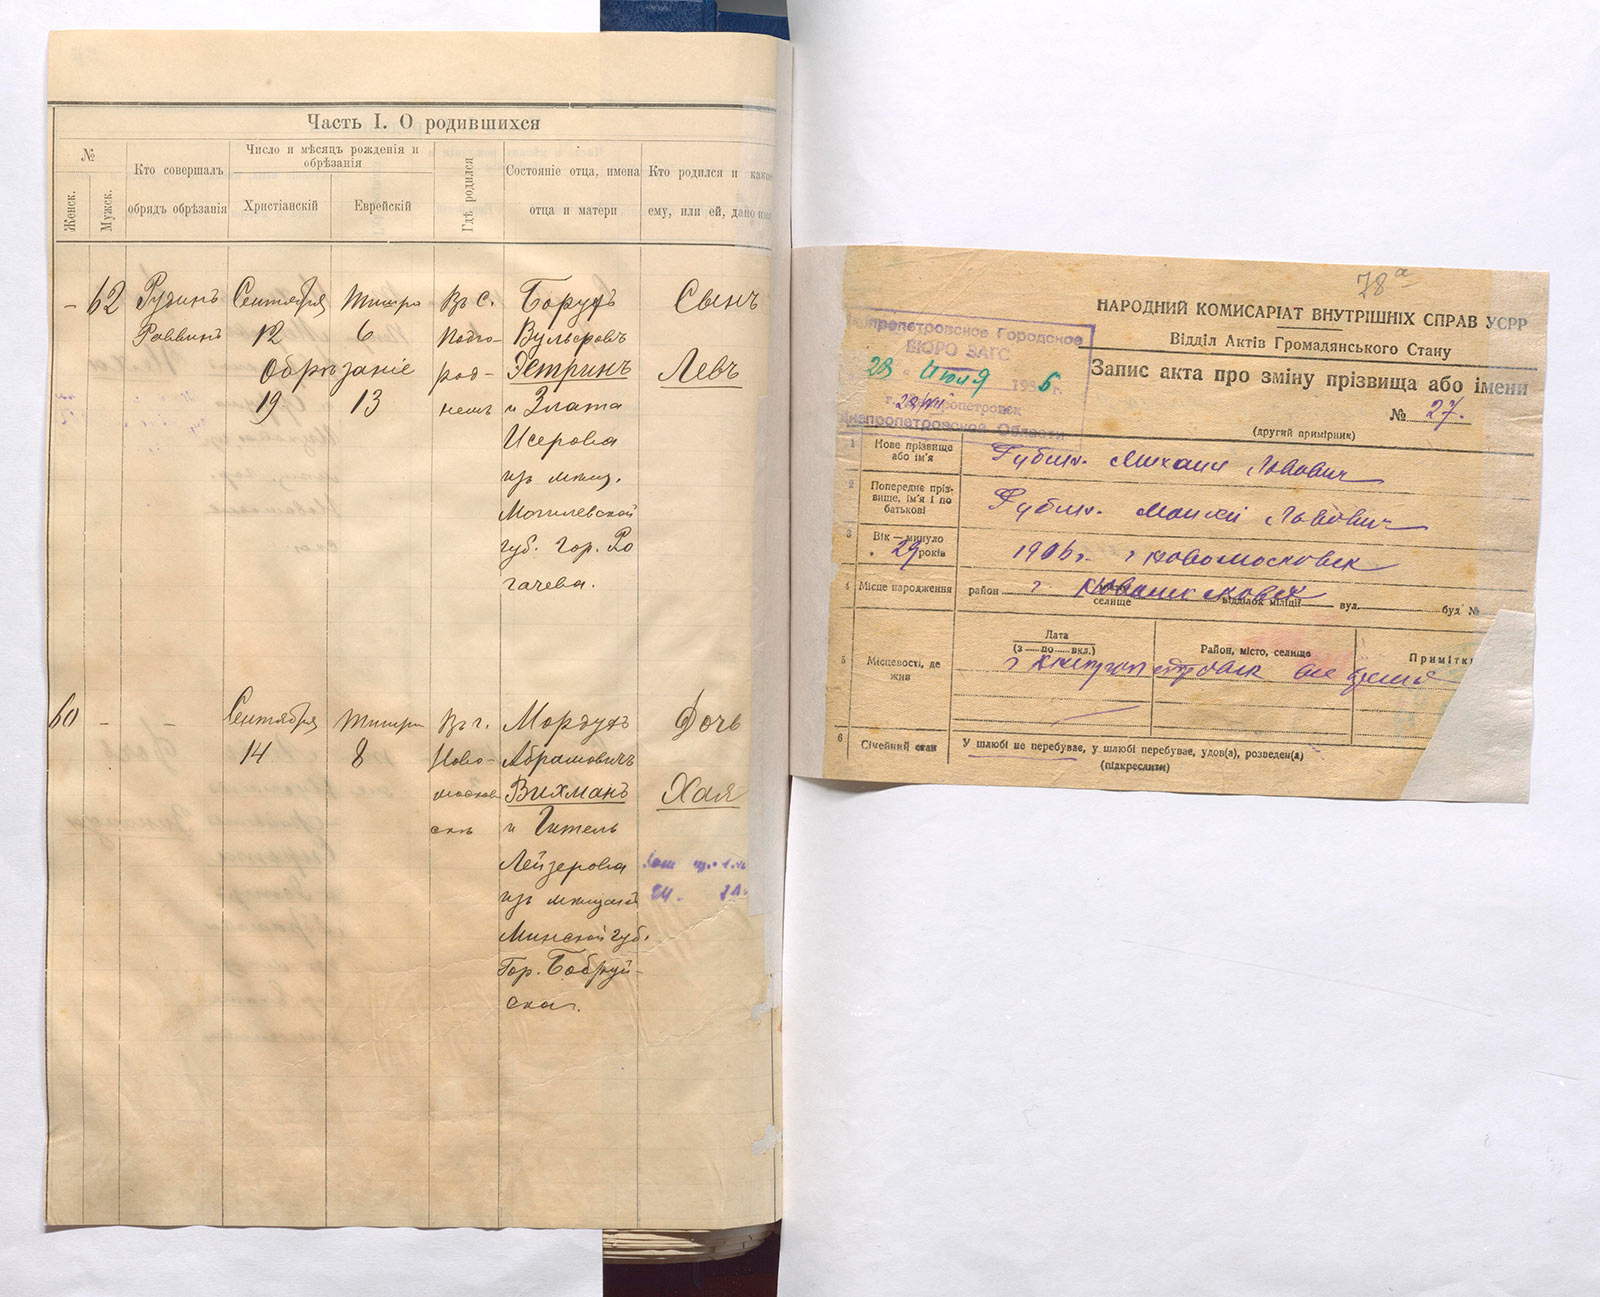 Часть I. О родившихся
№
Женск.
Мужск.
Кто совершалъ
обрядъ обрѣзанія
Число и мѣсяцъ рожденія и
обрѣзанія
Христіанскій
Еврейскій
Гдѣ родился
Состояніе отца, имена
отца и матери
Кто родился и какое
ему, или ей, дано имя
62
Рузинъ
Раввинъ
Сентября
12
Обрѣзаніе
19
Тишри
6
13
Въ с.
Подго-
род-
номъ
Борухъ
Вульфовъ
Эстринъ
и Злата
Исерова
изъ мѣщ.
Могилевской
губ. гор. Ро
гачева.
Сынъ
Левъ
60
Сентября
14
Тишри
8
Въ г.
Ново-
москов
скѣ
Мордухъ
Абрамовичъ
Вихманъ
и Гитель
Лейзерова
изъ мѣщанъ
Минской губ.
Гор. Бобруй-
ска.
Дочь
Хая
78а
НАРОДНИЙ КОМИСАРІАТ ВНУТРІШНІХ СПРАВ УСРР
Відділ Актів Громадянського Стану
Запис акта про зміну прізвища або імени
№ 27.
(другий примірник)
Днепропетровское Городское
БЮРО ЗАГС
28 Июля 1936 г.
г. Днепропетровск
Днепропетровской Области
1 Нове прізвище
або ім'я
Рубин. Михаил Львович
2 Попереднє пріз-
вище, ім'я і по
батькові
Рубин. Моисей Львович
3 Вік — минуло
29 років
1906 г. г Новомосковск
4 Місце народження
район г Новомосковск
селище
відділок міліції
вул.
буд №
5 Місцевості, де
жив
Дата
(з — по — вкл.)
Район, місто, селище
Примітки
г Днепропетровск все время
6 Сімейний стан
У шлюбі не перебуває, у шлюбі перебуває, удов(а), розведен(а)
(підкреслити)